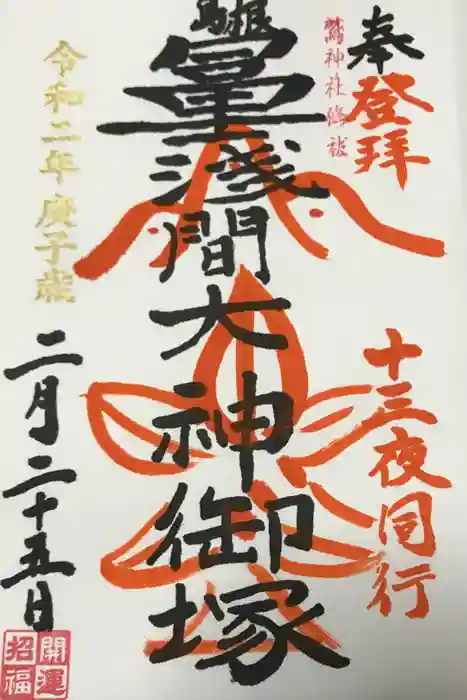 奉登拝
十三夜同行
鷲神社修祓
島根
淺間大神御塚
令和二年庚子歳
二月二十五日
開運
招福